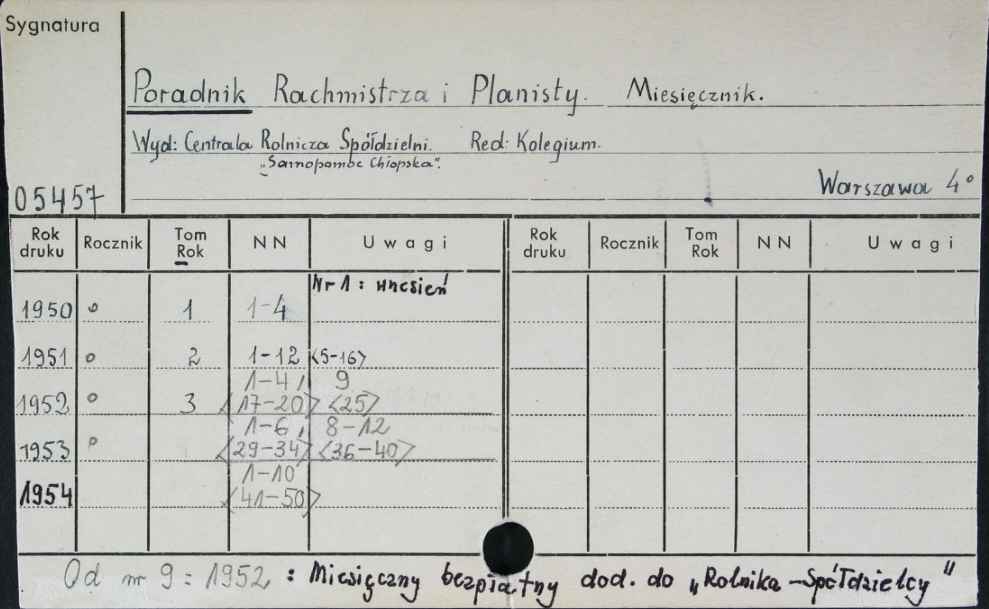 Sygnatura
Poradnik Rachmistrza i Planisty. Miesięcznik.
Wyd: Centrala Rolnicza Spółdzielni. Red: Kolegium.
„Samopomoc Chłopska".
05457 Warszawa 4°
Rok druku Rocznik Tom Rok NN Uwagi Rok druku Rocznik Tom Rok NN Uwagi
Nr 1 : wrzesień
1950 o 1 1-4
1951 o 2 1-12 <5-16>
1-4, 9
1952 o 3 <17-20> <25>
1-6, 8-12
1953 o <29-34> <36-40>
1-10
1954 <41-50>
Od nr 9 : 1952 : Miesięczny bezpłatny dod. do „Rolnika-Spółdzielcy"